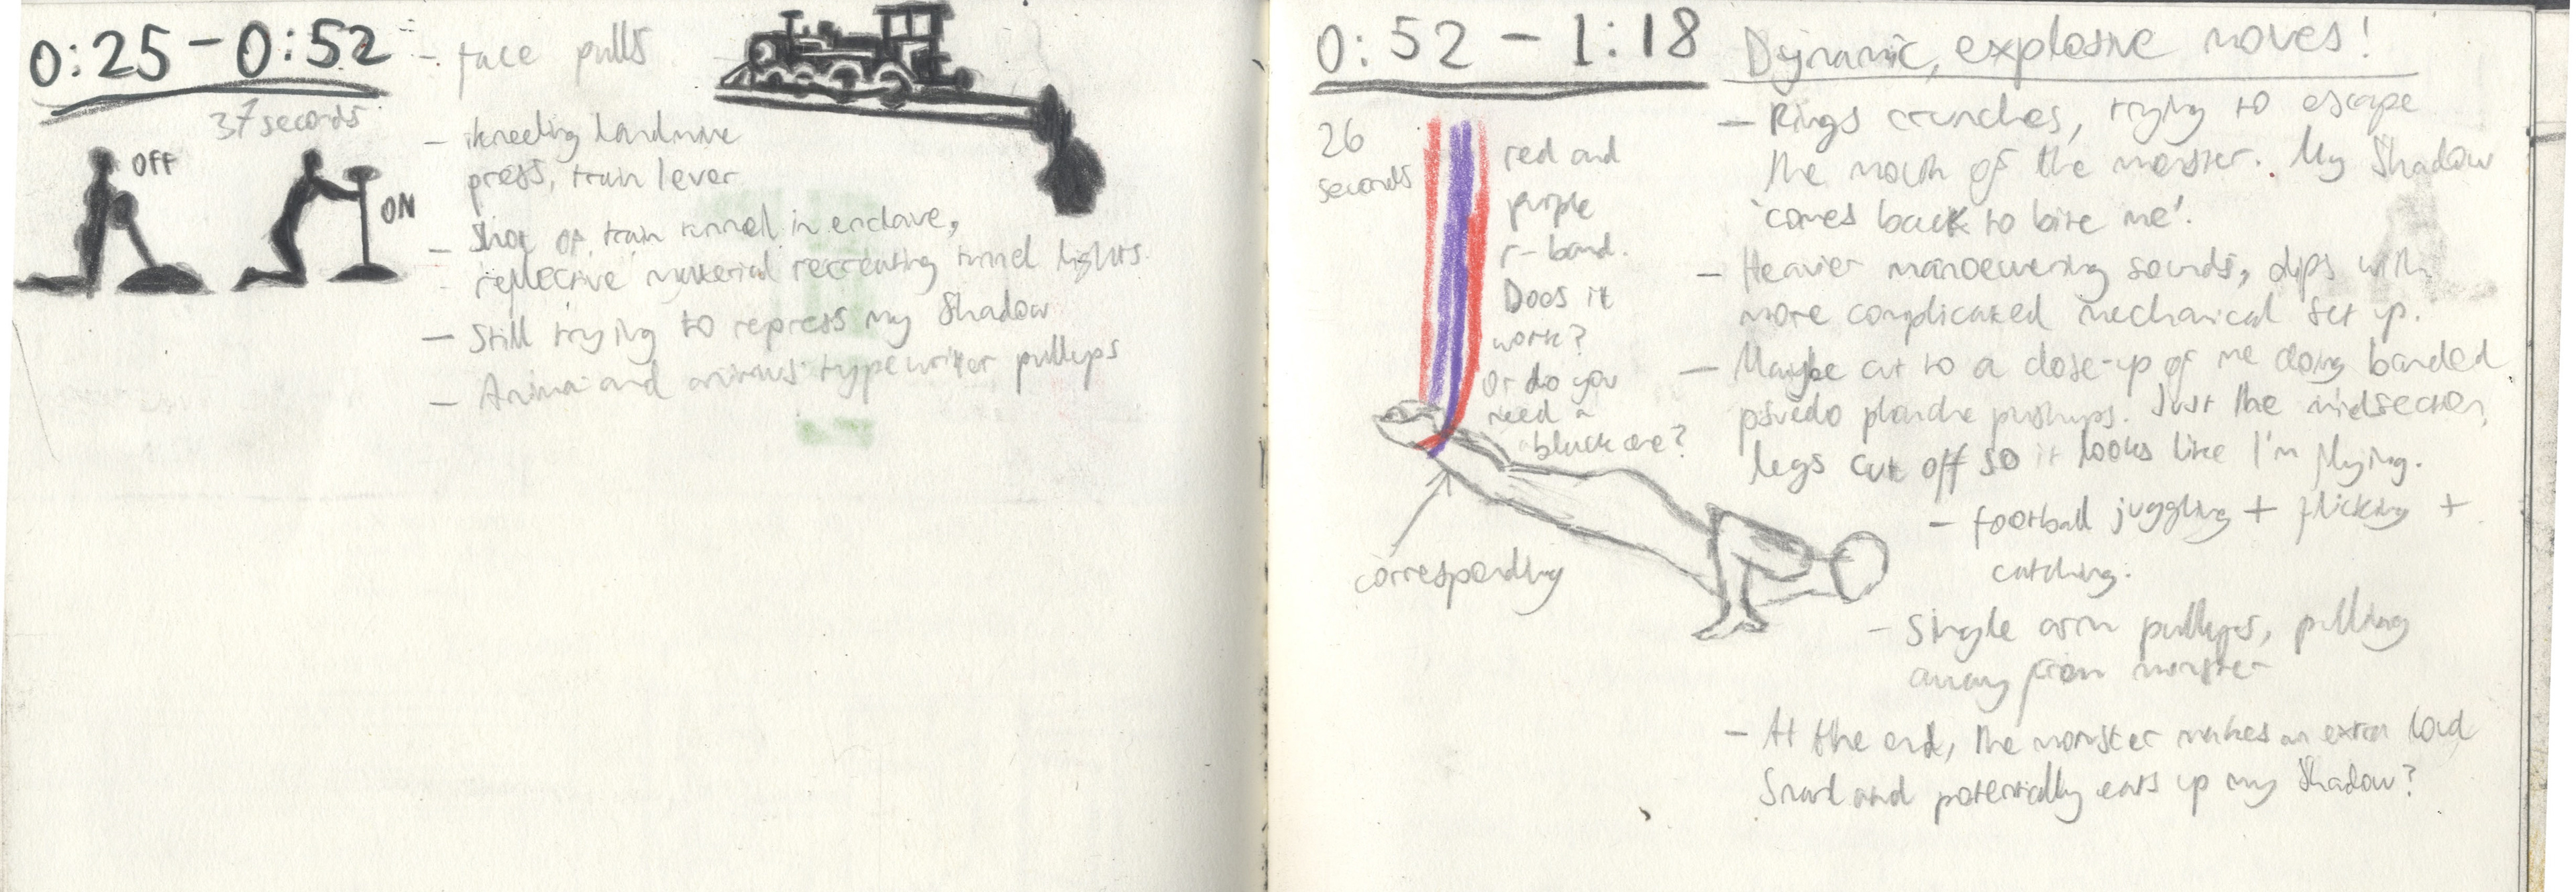 0:25 - 0:52
37 seconds
OFF
ON
- face pulls
- kneeling landmine
press, train lever
- Shot of train tunnel in enclave,
reflective material recreating tunnel lights.
- Still trying to repress my Shadow
- Anima and animus typewriter pullups
0:52 - 1:18
26
seconds
red and
purple
r-band.
Does it
work?
Or do you
need a
black one?
corresponding
Dynamic, explosive moves!
- Rings crunches, trying to escape
the mouth of the monster. My Shadow
'comes back to bite me'.
- Heavier manoeuvering sounds, dips with
more complicated mechanical set up.
- Maybe cut to a close-up of me doing banded
psuedo planche pushups. Just the midsection,
legs cut off so it looks like I'm flying.
- football juggling + flicking +
catching.
- Single arm pullups, pulling
away from monster
- At the end, the monster makes an extra loud
Snarl and potentially eats up my Shadow?